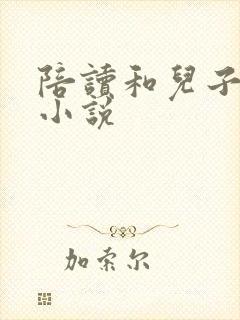 陪讀和兒子
小說
加索尔